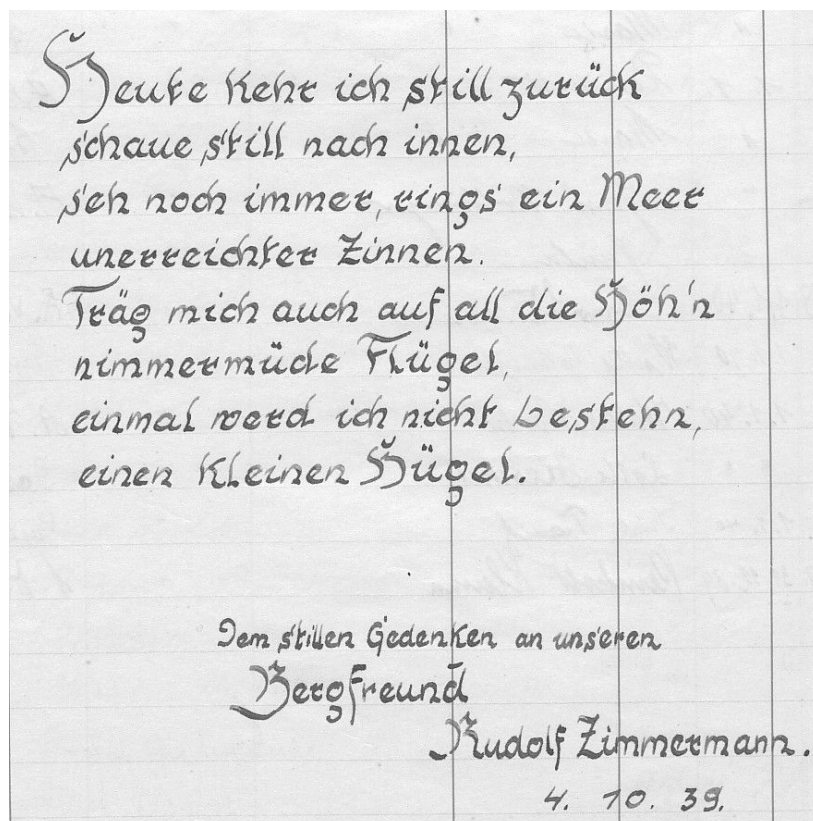 Heute kehr ich still zurück
schaue still nach innen,
seh noch immer, rings ein Meer
unerreichter Zinnen.
Träg mich auch auf all die Höh'n
nimmermüde Flügel,
einmal werd ich nicht bestehn,
einen kleinen Hügel.
Dem stillen Gedenken an unseren
Bergfreund
Rudolf Zimmermann.
4. 10. 39.